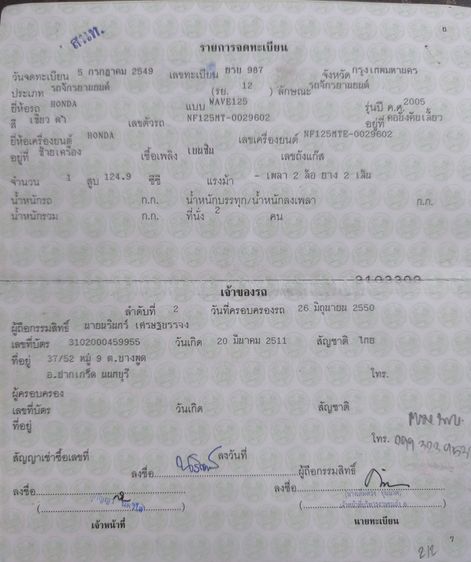 สนท.
รายการจดทะเบียน
วันจดทะเบียน 5 กรกฎาคม 2549 เลขทะเบียน 987 จังหวัด กรุงเทพมหานคร
ประเภท รถจักรยานยนต์ (รย. 12 ) ลักษณะ รถจักรยานยนต์
ยี่ห้อรถ HONDA แบบ WAVE125 รุ่นปี ค.ศ. 2005
สี เขียว ดำ เลขตัวรถ NF125MT-0029602 อยู่ที่ คอยึดคันเลี้ยว
ยี่ห้อเครื่องยนต์ HONDA เลขเครื่องยนต์ NF125MTE-0029602
อยู่ที่ ซ้ายเครื่อง เชื้อเพลิง เบนซิน เลขถังแก๊ส
จำนวน 1 สูบ 124.9 ซีซี แรงม้า - เพลา 2 ล้อ ยาง 2 เส้น
น้ำหนักรถ ก.ก. น้ำหนักบรรทุก/น้ำหนักลงเพลา ก.ก.
น้ำหนักรวม ก.ก. ที่นั่ง 2 คน
เจ้าของรถ
ลำดับที่ 2 วันที่ครอบครองรถ 26 มิถุนายน 2550
ผู้ถือกรรมสิทธิ์ นายนรินทร์ เศรษฐบรรจง
เลขที่บัตร 3102000459955 วันเกิด 20 มีนาคม 2511 สัญชาติ ไทย
ที่อยู่ 37/52 หมู่ 9 ต.บางพูด
อ.ปากเกร็ด นนทบุรี โทร.
ผู้ครอบครอง
เลขที่บัตร วันเกิด สัญชาติ
ที่อยู่
โทร.
สัญญาเช่าซื้อเลขที่ ลงวันที่
ลงชื่อ ผู้ถือกรรมสิทธิ์
ลงชื่อ ลงชื่อ
เจ้าหน้าที่ นายทะเบียน
7
2/2